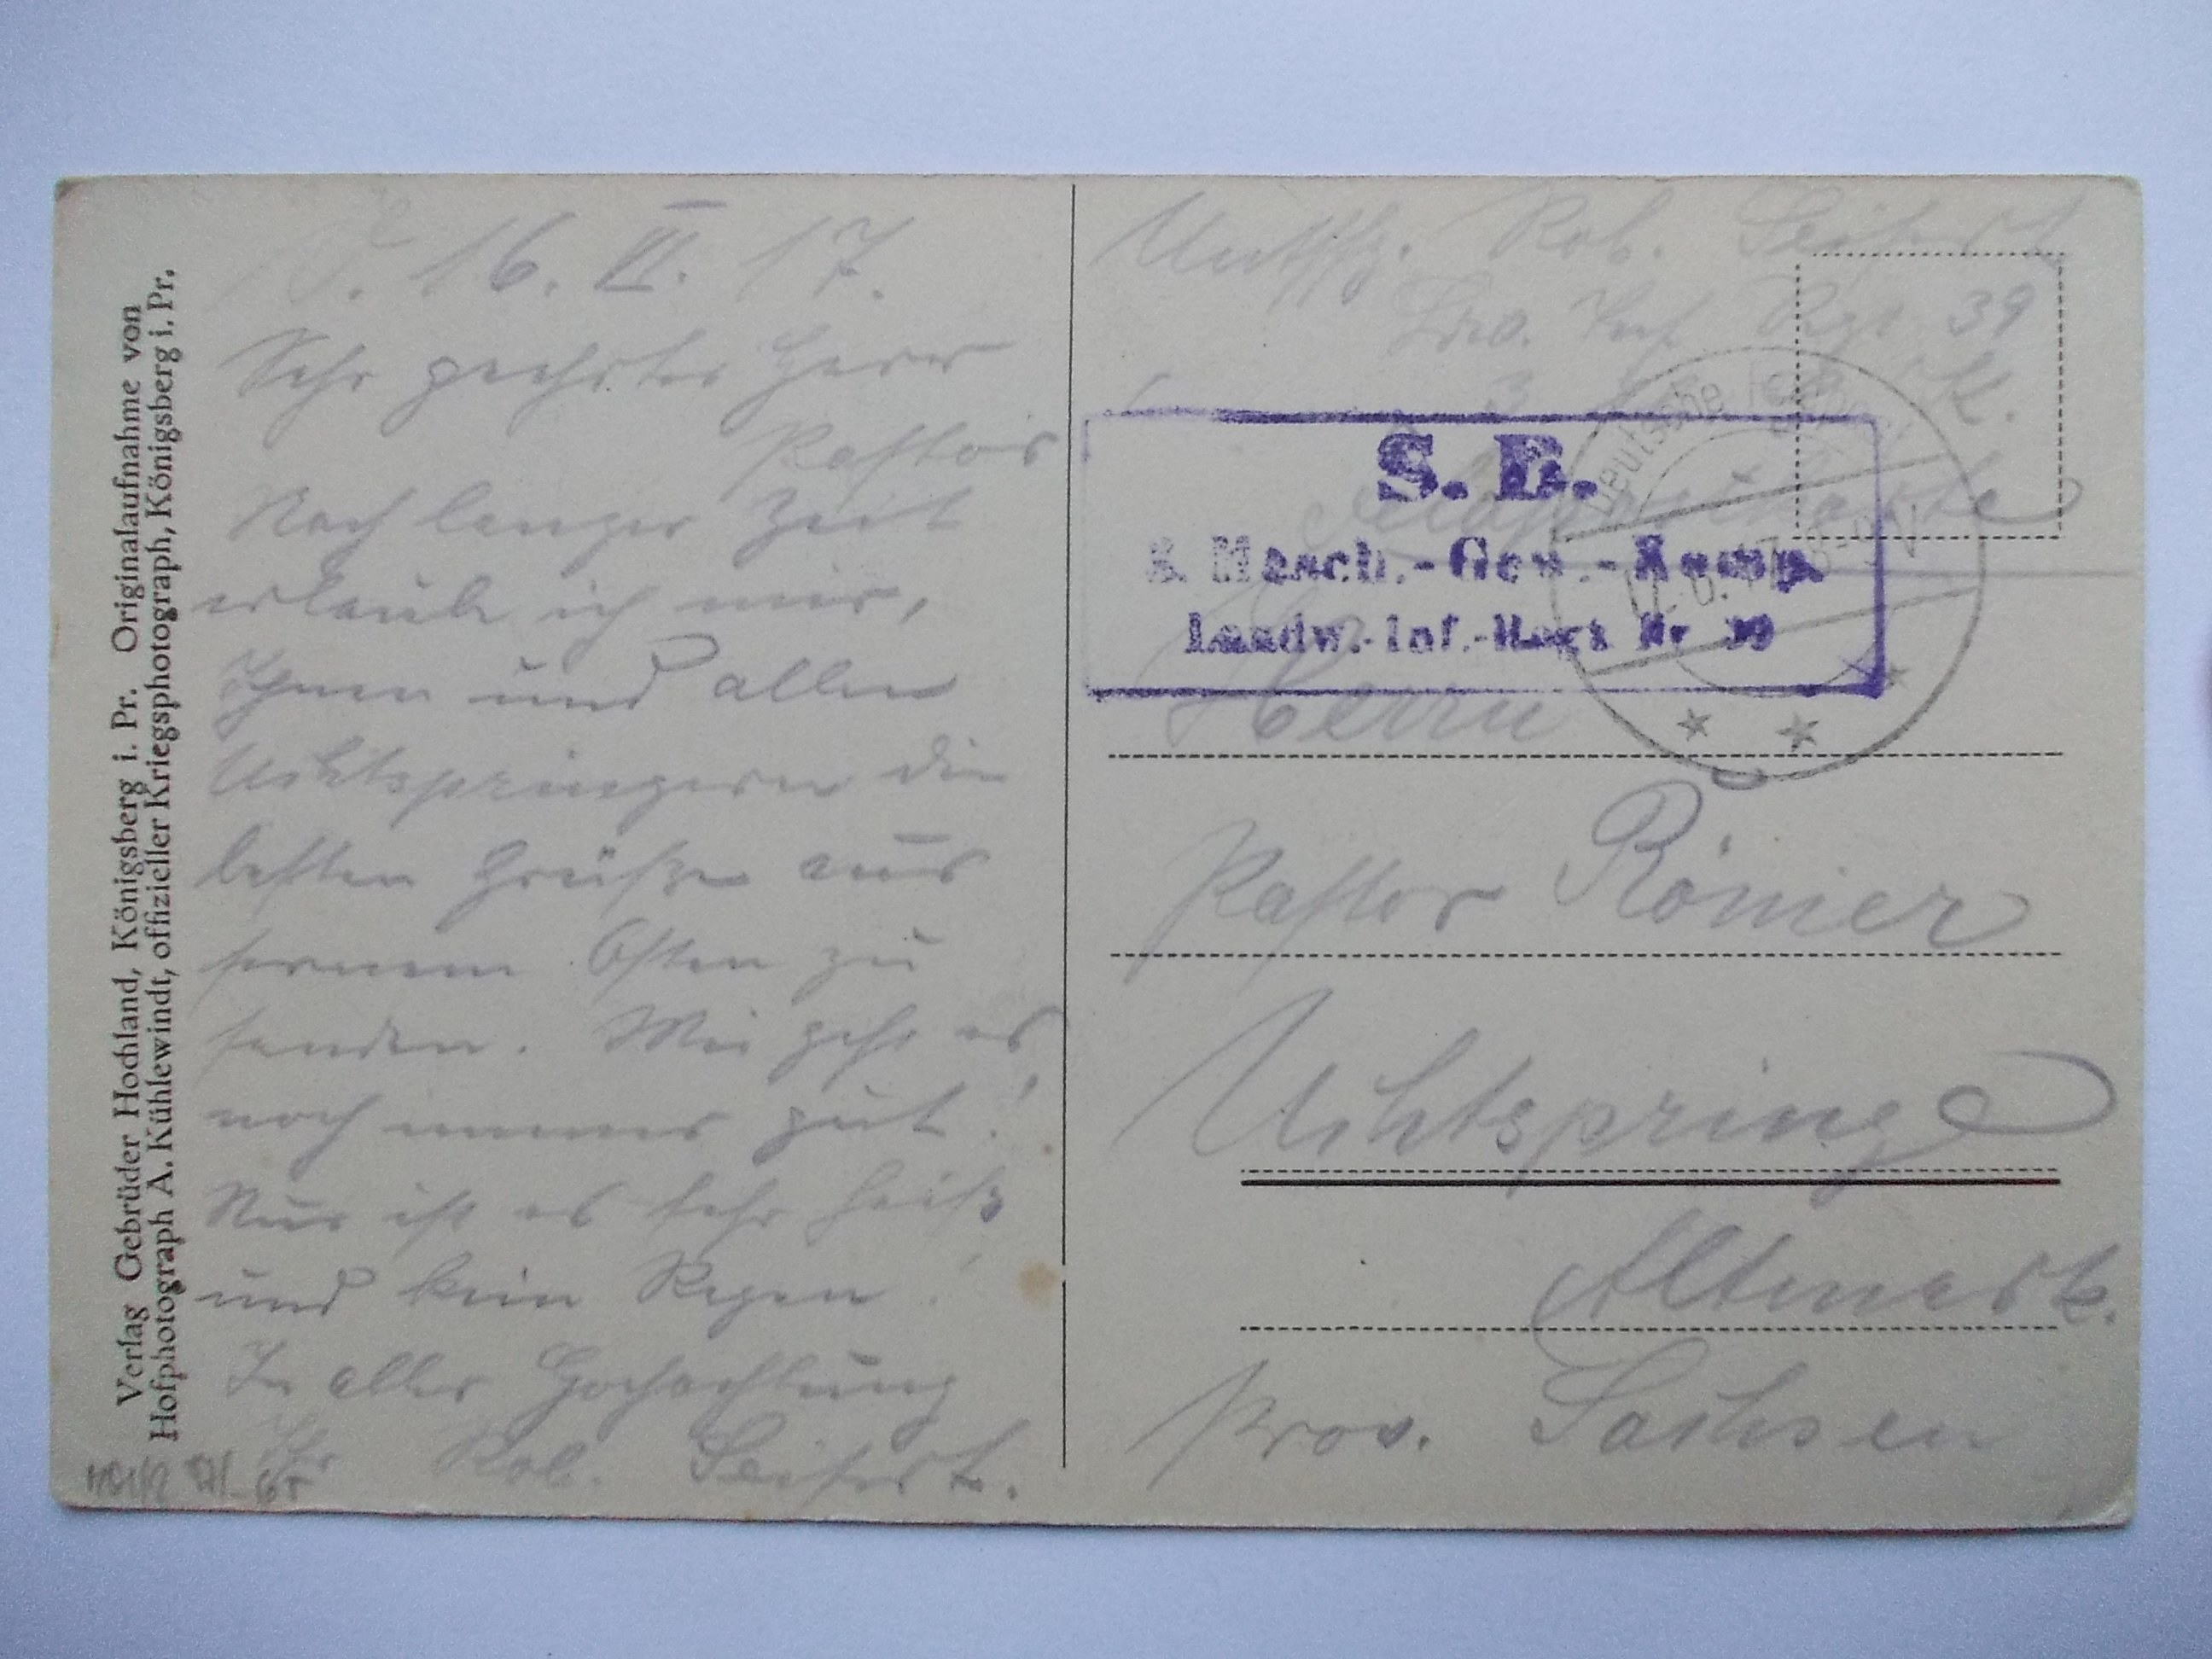 Verlag Gebrüder Hochland, Königsberg i. Pr. Originalaufnahme von
Hofphotograph A. Kühlewindt, offizieller Kriegsphotograph, Königsberg i. Pr.
16. VI. 17.
Sehr geehrter Herr
Pastor
Nach langer Zeit
erlaube ich mir,
Ihnen und allen
Uchtspringern die
besten Grüße aus
fernem Osten zu
senden. Mir geht es
noch immer gut!
Nur ist es sehr heiß
und kein Regen!
In aller Hochachtung
Ihr Rob. Seifert.
Rob. Seifert
Ldw. Inf. Rgt 39
3. M. G. K.
Feldpostkarte
S. B.
3. Masch.-Gew.-Komp.
Landw.-Inf.-Regt Nr 39
Deutsche
Herrn
Pastor Römer
Uchtspringe
Altmark.
Prov. Sachsen